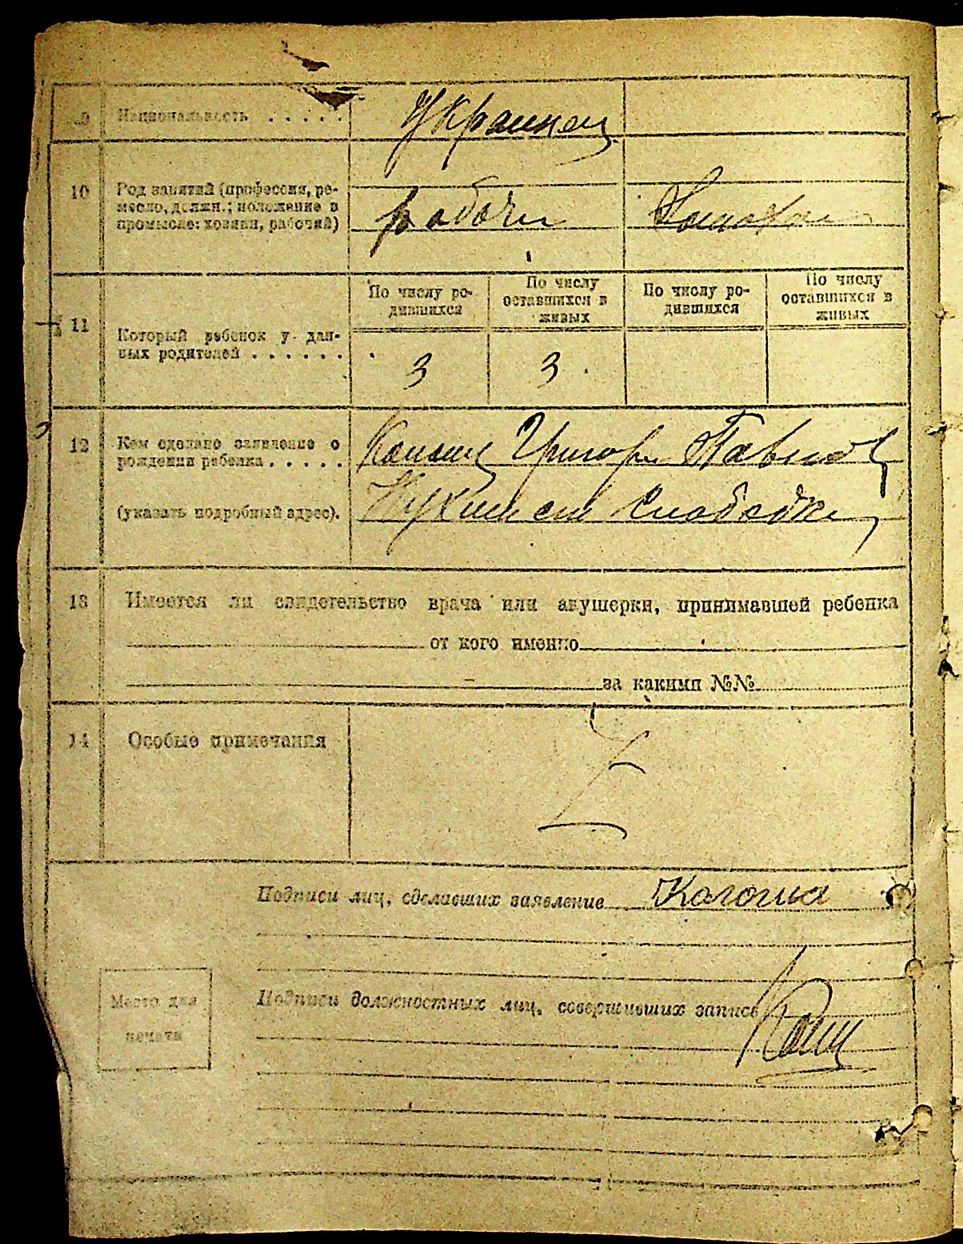 9 Национальность . . . . . Украинец
10 Род занятий (профессия, ре-
месло, должн.; положение в
промысле: хозяин, рабочий)
рабочи
11 Который ребенок у дан-
ных родителей . . . . . .
По числу ро-
дившихся
По числу
оставшихся в
живых
По числу ро-
дившихся
По числу
оставшихся в
живых
3 3
12 Кем сделано заявление о
рождении ребенка . . . . .
(указать подробный адрес).
Григори Павлов
слободка
13 Имеется ли свидетельство врача или акушерки, принимавшей ребенка
от кого именно
за какими №№
14 Особые примечания
Z
Подписи лиц, сделавших заявление
Место для
печати
Подписи должностных лиц, совершивших запись